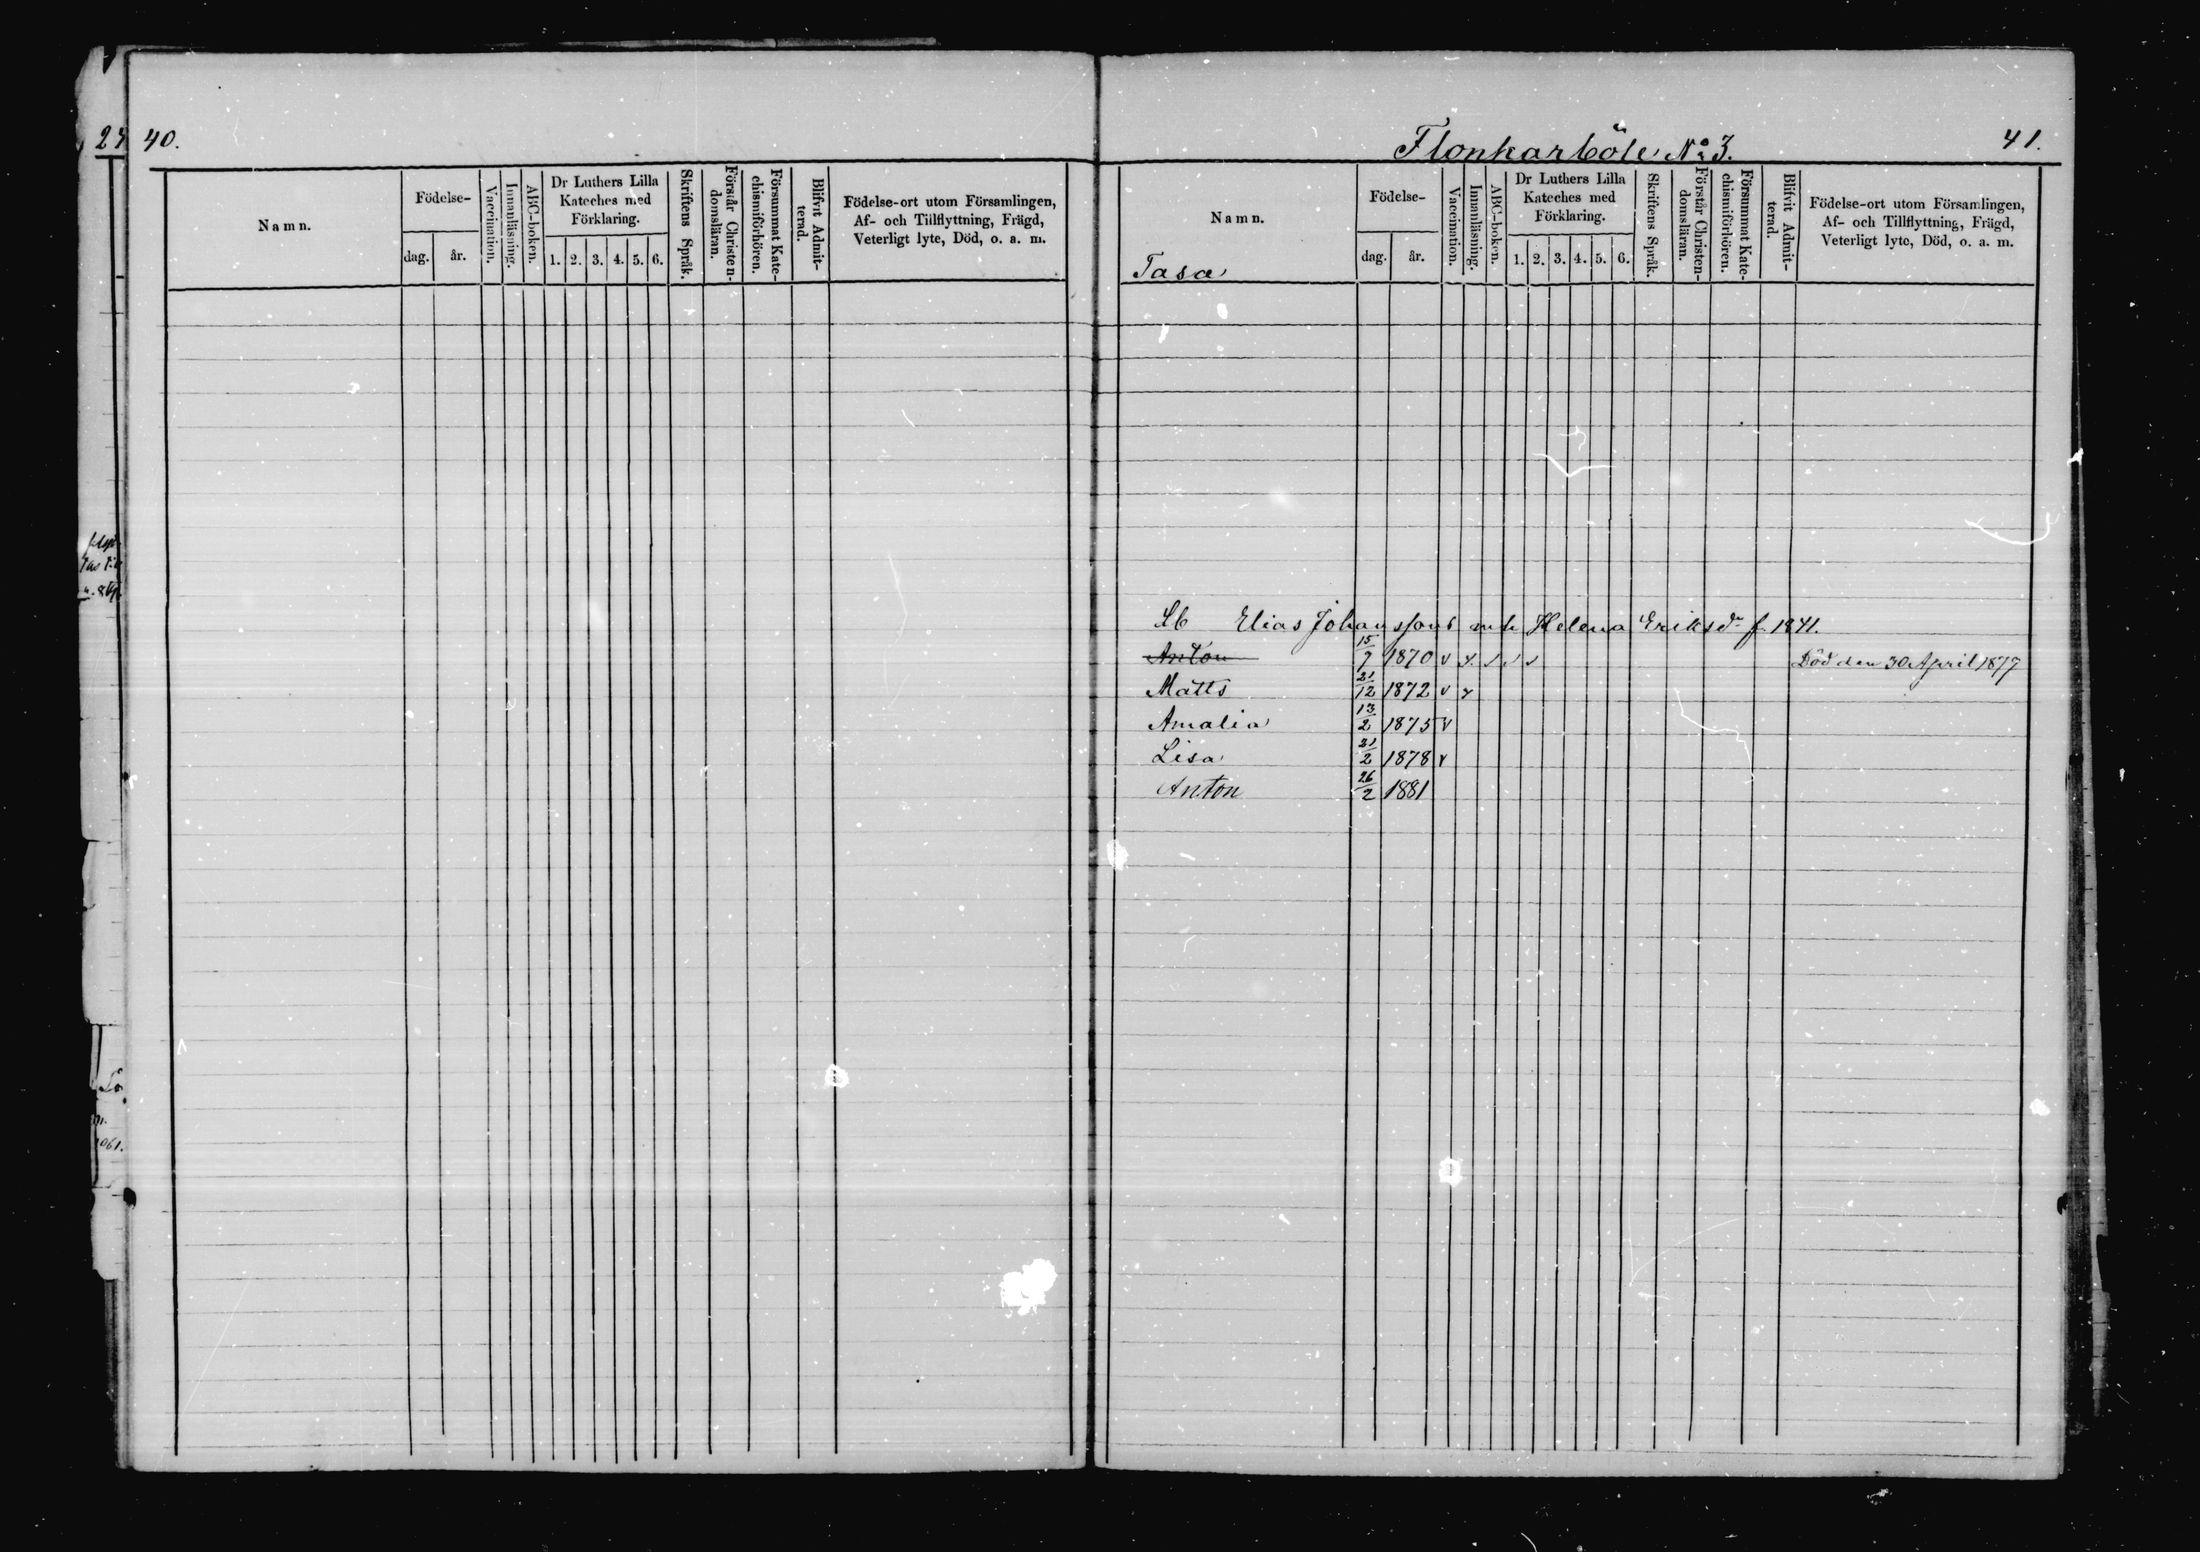 40.
Namn.
Födelse-
dag. år.
Vaccination.
Innanläsning.
ABC-boken.
Dr Luthers Lilla
Kateches med
Förklaring.
1. 2. 3. 4. 5. 6.
Skriftens Språk.
Förstår Christen-
domsläran.
Försummat Kate-
chismiförhören.
Blifvit Admit-
terad.
Födelse-ort utom Församlingen,
Af- och Tillflyttning, Frägd,
Veterligt lyte, Död, o. a. m.
Flonkarböle No 3.
41.
Namn.
Tasa
Födelse-
dag. år.
Vaccination.
Innanläsning.
ABC-boken.
Dr Luthers Lilla
Kateches med
Förklaring.
1. 2. 3. 4. 5. 6.
Skriftens Språk.
Förstår Christen-
domsläran.
Försummat Kate-
chismiförhören.
Blifvit Admit-
terad.
Födelse-ort utom Församlingen,
Af- och Tillflyttning, Frägd,
Veterligt lyte, Död, o. a. m.
Elias Johanssons och Helena Eriksdr f. 1841.
Anton 15/7 1870 Död den 30 April 1877
Matts 21/12 1872
Amalia 13/2 1875
Lisa 21/2 1878
Anton 26/2 1881